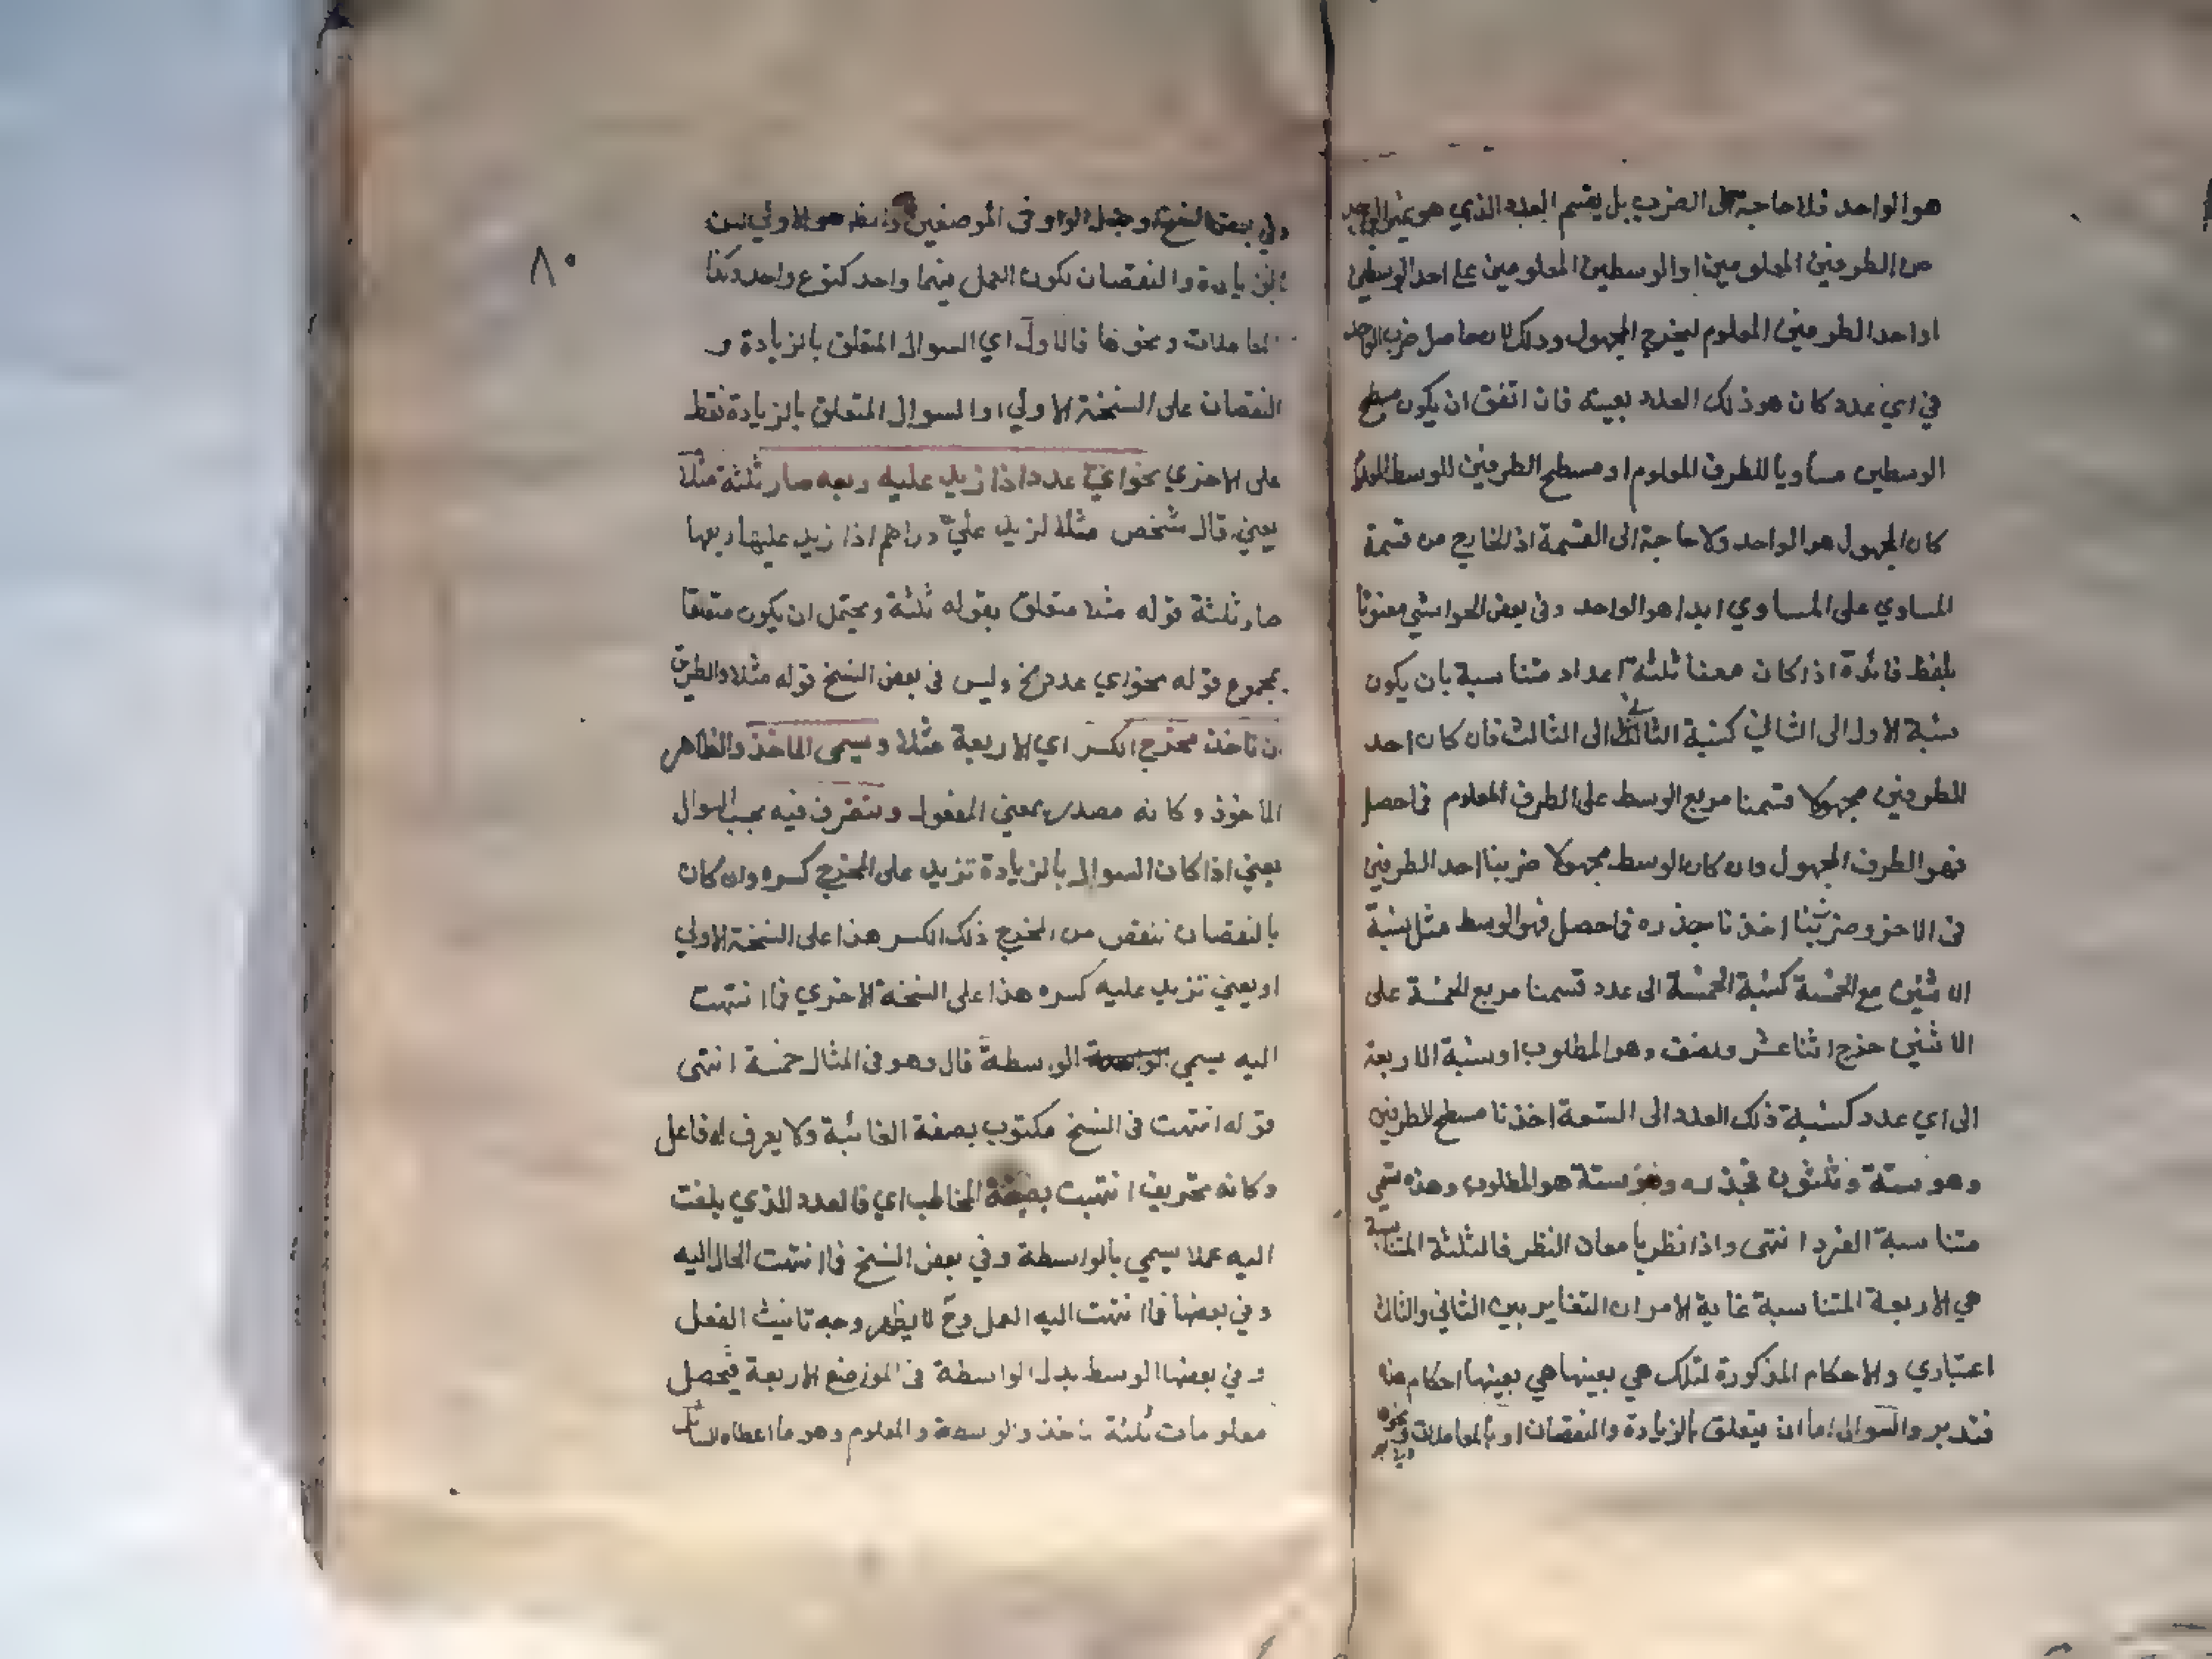 هو الواحد فلا حاجة الى الضرب بل يقسم العدد الذي هو غير الواحد
من الطرفين المعلومين او الوسطين المعلومين على احد الوسطين
او احد الطرفين المعلوم ليخرج المجهول وذلك لان حاصل ضرب الواحد
في اي عدد كان هو ذلك العدد بعينه فان اتفق ان يكون مسطح
الوسطين مساويا للطرف المعلوم او مسطح الطرفين للوسط المعلوم
كان المجهول هو الواحد ولا حاجة الى القسمة اذ الخارج من قسمة
المساوي على المساوي ابدا هو الواحد وفي بعض الحواشي معنونا
بلفظ فائدة اذا كان معنا ثلثة اعداد متناسبة بان يكون
نسبة الاول الى الثاني كنسبة الثاني الى الثالث فان كان احد
الطرفين مجهولا قسمنا مربع الوسط على الطرف المعلوم فما حصل
فهو الطرف المجهول وان كان الوسط مجهولا ضربنا احد الطرفين
في الاخر وضربنا اخذنا جذره فما حصل فهو الوسط مثل نسبة
الاثنين مع الخمسة كنسبة الخمسة الى عدد قسمنا مربع الخمسة على
الاثنين خرج اثنا عشر ونصف وهو المطلوب او نسبة الاربعة
الى اي عدد كنسبة ذلك العدد الى التسعة اخذنا مسطح الطرفين
وهو ستة وثلثون فجذره وهو ستة هو المطلوب وهذه تسمى
متناسبة الفرد انتهى واذا نظر بامعان النظر فالثلثة المتناسبة
هي الاربعة المتناسبة غاية الامر ان التغاير بين الثاني والثالث
اعتباري والاحكام المذكورة لتلك هي بعينها هي بعينها احكام هذه
فتدبر والسوال اما ان يتعلق بالزيادة والنقصان او بالمعاملات ونحوها
وفي بعض النسخ او بدل الواو في الموضعين
الزيادة والنقصان يكون العمل فيهما واحد كنوع واحد وكذا
المعاملات ونحوها فالاول اي السوال المتعلق بالزيادة و
النقصان على النسخة الاولى او السوال المتعلق بالزيادة فقط
على الاخرى نحو اي عدد اذا زيد عليه ربعه صار ثلثة مثلا
يعني قال شخص مثلا لزيد عليّ دراهم اذا زيد عليها ربعها
صار ثلثة قوله مثلا متعلق بقوله ثلثة ويحتمل ان يكون متعلقا
بمجموع قوله نحو اي عدد الخ وليس في بعض النسخ قوله مثلا والطريق
ان تاخذ مخرج الكسر اي الاربعة مثلا ويسمى الماخذ والظاهر
الماخوذ وكانه مصدر بمعنى المفعول وتتصرف فيه بحسب السوال
يعني اذا كان السوال بالزيادة تزيد على المخرج كسره وان كان
بالنقصان تنقص من المخرج ذلك الكسر هذا على النسخة الاولى
او يعني تزيد عليه كسره هذا على النسخة الاخرى فما انتهت
اليه يسمى الواسطة قال وهو في المثال خمسة انتهى
قوله انتهت في النسخ مكتوب بصفة الغائبة ولا يعرف له فاعل
وكانه تحريف انتهيت بصيغة المخاطب اي فالعدد الذي بلغت
اليه عملا يسمى بالواسطة وفي بعض النسخ فما انتهت الحال اليه
وفي بعضها فما انتهت اليه العمل وح لا يظهر وجه تانيث الفعل
وفي بعضها الوسط بدل الواسطة في المواضع الاربعة فيحصل
معلومات ثلثة ماخذ والواسطة والمعلوم وهو ما اعطاه السائل
٨٠